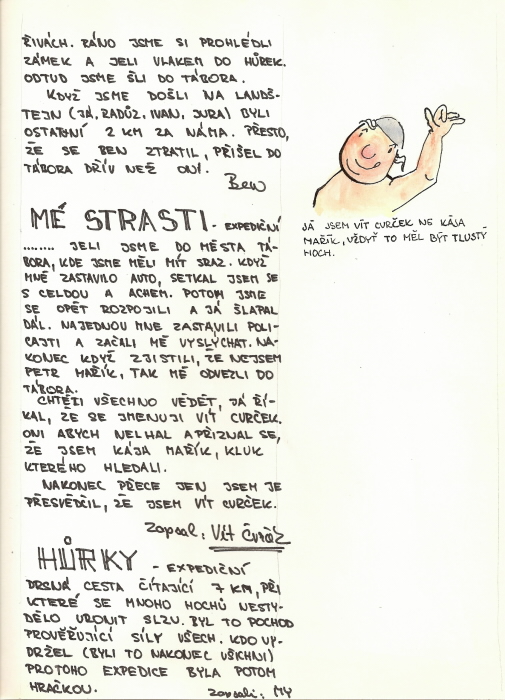 ŘIVÁCH. RÁNO JSME SI PROHLÉDLI
ZÁMEK A JELI VLAKEM DO HŮREK.
ODTUD JSME ŠLI DO TÁBORA.
KDYŽ JSME DOŠLI NA LANDŠ-
TEJN (JÁ, RADŮZ, IVAN, JURA) BYLI
OSTATNÍ 2 KM ZA NÁMA. PŘESTO,
ŽE SE BEN ZTRATIL, PŘIŠEL DO
TÁBORA DŘÍV NEŽ ONI.
Ben
MÉ STRASTI - EXPEDIČNÍ
........ JELI JSME DO MĚSTA TÁ-
BORA, KDE JSME MĚLI MÍT SRAZ. KDYŽ
MNĚ ZASTAVILO AUTO, SETKAL JSEM SE
S CELDOU A ACHEM. POTOM JSME
SE OPĚT ROZPOJILI A JÁ ŠLAPAL
DÁL. NAJEDNOU MNE ZASTAVILI POLI-
CAJTI A ZAČALI MĚ VYSLÝCHAT. NA-
KONEC KDYŽ ZJISTILI, ŽE NEJSEM
PETR MAŘÍK, TAK MĚ ODVEZLI DO
TÁBORA.
CHTĚLI VŠECHNO VĚDĚT, JÁ ŘÍ-
KAL, ŽE SE JMENUJI VÍT CURČEK.
ONI ABYCH NELHAL A PŘIZNAL SE,
ŽE JSEM KÁJA MAŘÍK, KLUK
KTERÉHO HLEDALI.
NAKONEC PŘECE JEN JSEM JE
PŘESVĚDČIL, ŽE JSEM VÍT CURČEK.
Zapsal: Vít Čurčk
HŮRKY - EXPEDIČNÍ
DRSNÁ CESTA ČÍTAJÍCÍ 7 KM, PŘI
KTERÉ SE MNOHO HOCHŮ NESTY-
DĚLO URONIT SLZU. BYL TO POCHOD
PROVĚŘUJÍCÍ SÍLY VŠECH. KDO VY-
DRŽEL (BYLI TO NAKONEC VŠICHNI)
PROTOHO EXPEDICE BYLA POTOM
HRAČKOU.
Zapsali: MY
JÁ JSEM VÍT CURČEK NE KÁJA
MAŘÍK, VŽDYŤ TO MĚL BÝT TLUSTÝ
HOCH.